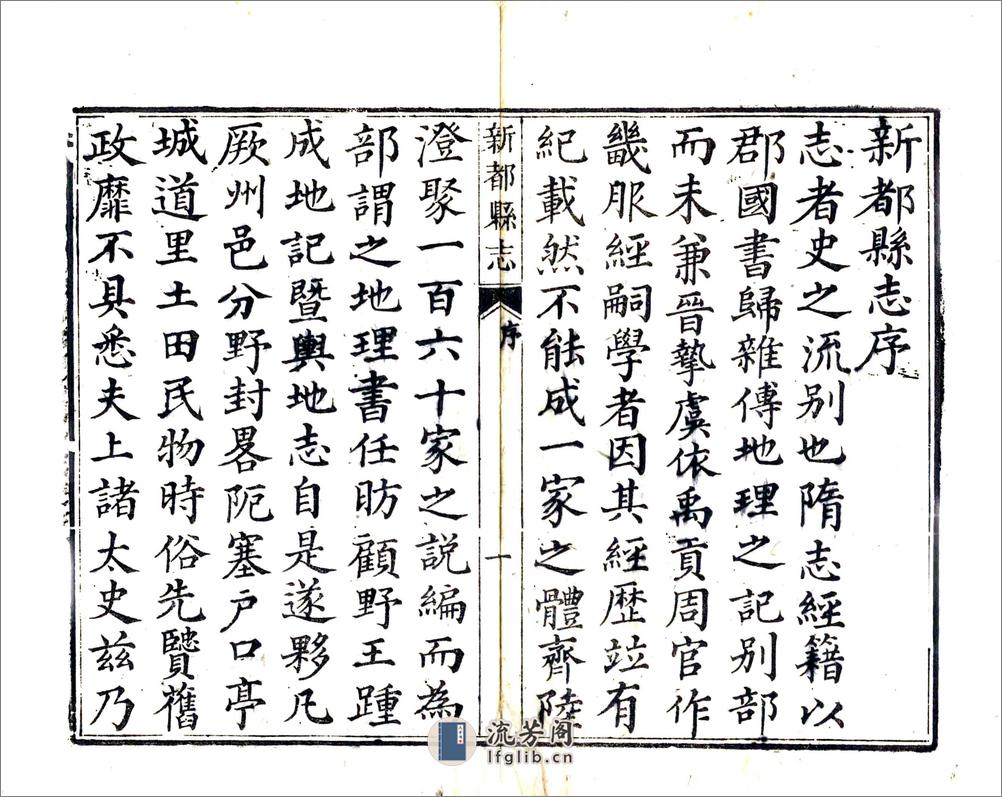 新都縣志序
志者史之流别也隋志經籍以
郡國書歸雜傳地理之記别部
而未兼晉摯虞依禹貢周官作
畿服經嗣學者因其經歷竝有
紀載然不能成一家之體齊陸
新都縣志
序
一
澄聚一百六十家之説編而為
部謂之地理書任昉顧野王踵
成地記暨輿地志自是遂夥凡
厥州邑分野封畧阨塞户口亭
城道里土田民物時俗先賢舊
政靡不具悉夫上諸太史兹乃
流芳阁
lfglib.cn